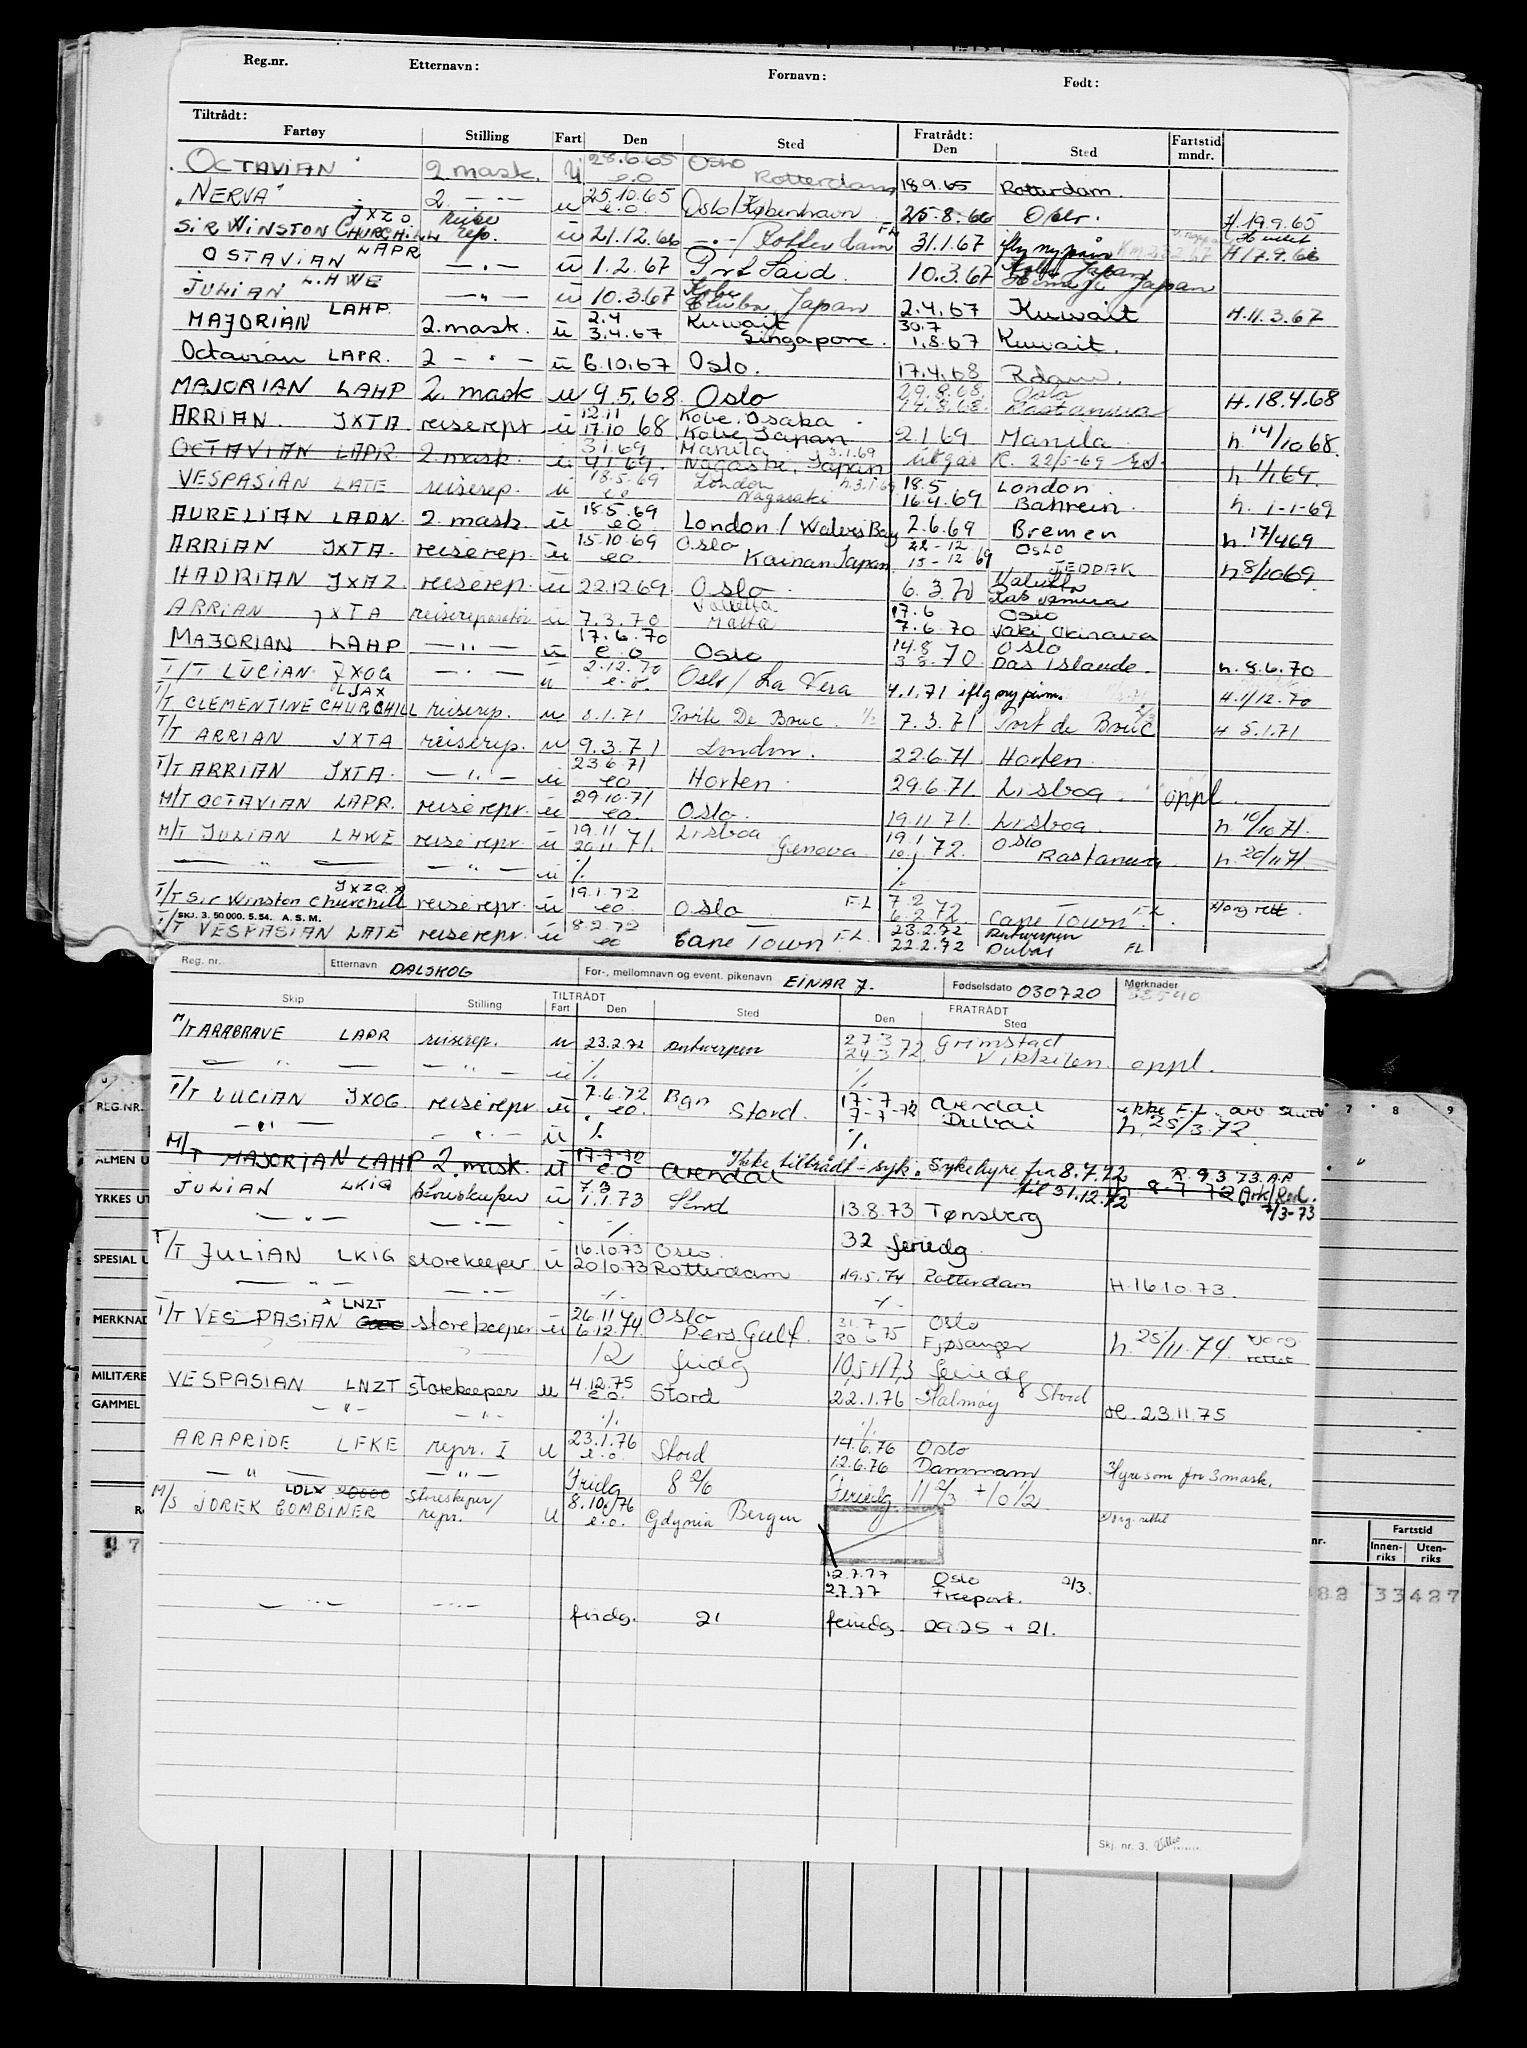 Reg.nr. Etternavn: Fornavn: Født:
Tiltrådt: Fratrådt: Fartstid mndr.
Fartøy Stilling Fart Den Sted Den Sted
OCTAVIAN 2 mask. U 28.6.65 e.o Oslo Rotterdam 18.9.65 Rotterdam
"NERVA" 2 — " — u 25.10.65 e.o. Oslo/København 25.8.66 Oslo. H 19.9.65
SIR WINSTON CHURCHILL JXZO reise rep. ü 21.12.66 — " — / Rotterdam FL 31.1.67 iflg ny påm H 17.9.66
OSTAVIAN LAPR — " — ü 1.2.67 Port Said. 10.3.67 Kobe Japan Himeji Japan
JULIAN LAWE — " — ü 10.3.67 Kobe Japan 2.4.67 Kuwait H.11.3.67
MAJORIAN LAHP 2.mask. ü 2.4 3.4.67 Kuwait Singapore. 30.7 1.8.67 Kuwait.
Octavian LAPR. 2 — " — ü 6.10.67 Oslo. 17.4.68 Rdam.
MAJORIAN LAHP 2. mask u 9.5.68 Oslo 29.8.68. Oslo Rastanura H.18.4.68
ARRIAN. JXTA reiserepr ü 12.11 17.10 68 Kobe. Osaka Kobe, Japan 2.1 69 Manila. h. 14/10 68.
OCTAVIAN LAPR. 2.mask. ü 3.1.69 4.1.69. Manila 3.1.69 Nagaski, Japan utgår K. 22/5-69 h 1/1 69.
VESPASIAN LATE reiserep. ü 18.5.69 e.o London Nagasaki h.3.1.69 18.5 16.4.69 London Bahrein. h. 1-1-69
AURELIAN LADN. 2. mask ü 18.5.69 eo London / Walvis Bay 2.6.69 Bremen h. 17/469
ARRIAN JXTA. reiserep. ü 15.10.69 eo. Oslo Kainan Japan 22-12 15-12 69 OSLO JEDDAK h 8/1069
HADRIAN JXAZ reiserep. ü 22.12 69 Oslo 6.3.70 Valetta
ARRIAN JXTA reisereparatør ü 7.3.70 Valletta Malta 17.6 7.6.70 Oslo Vaki Okinawa
MAJORIAN LAHP — " — ü 17.6.70 e.o Oslo 14.8 3 8.70 Oslo Das Islande. h. 8.6.70
T/T LUCIAN JXOG — " — u 2.12.70 e.o. Oslo / La Vera 4.1.71 iflg ny påm. H.1/12.70
T/T CLEMENTINE CHURCHILL LJAX reiserep. u 8.1.71 Porte De Bouc. 7.3.71 Port de Bouc H 5.1.71
T/T ARRIAN JXTA reiserep. u 9.3.71 London. 22.6.71 Horten
T/T ARRIAN JXTA. — " — ü 23.6.71 eo Horten 29.6.71. Lisboa. oppl.
M/T OCTAVIAN LAPR. reiserepr. ü 29.10.71 eo. Oslo. 19.11 71. Lisboa. h 10/10 71.
M/T JULIAN LAWE reiserepr. ü 19.11 20.11 71. Lisboa Genova 19.1 10.1 72. Oslo Rastanura h. 20/11 71.
— " — — " — ü % %
T/T Sir Winston Churchill JXZO reiserepr. ü 19.1.72 eo Oslo F.L 7.2 6.2 72. Cape Town F.L. Norg rett.
SKJ. 3. 50 000. 5.54. A.S.M.
T/T VESPASIAN LATE reiserepr. ü 8.2.72 eo Cape Town F.L. 23.2.72 22.2.72 Antwerpen Dubai FL
Reg. nr. Etternavn DALSKOG For-, mellomnavn og event. pikenavn EINAR J. Fødselsdato 030720 Merknader
TILTRÅDT FRATRÅDT
Skip Stilling Fart Den Sted Den Sted
M/T ARABRAVE LAPR reiserep. u 23.2.72 Antwerpen 27.3 24.3 72. Grimstad Vikkilen. oppl.
— " — — " — ü % %
T/T LUCIAN JXOG reiserepr ü 7.6.72 eo. Bgn Stord. 17-7- 7-7-72 Arendal Dubai ikke F.L. h. 25/3.72
— " — — " — ü % %
M/T MAJORIAN LAHP 2 mask. ü 17.7.72 eo Arendal Ikke tiltrådt - syk. Sykehyre fra 8.7.72 til 31.12.72 R. 9.3 73.
JULIAN LKIG storekeeper ü 7.3 1.1.73 Stord 13.8.73 Tønsberg 7/3-73
— " — — " — % 32 feriedg
T/T JULIAN LKIG storekeeper ü 16.10.73 20.10.73 Oslo. Rotterdam 19.5.74 Rotterdam H.16.10.73.
— " — — " — % %
T/T VESPASIAN LNZT storekeeper ü 26.11.74 6.12.74. Oslo Pers. Gulf. 31.7 30.6 75 Oslo Fjøsanger h. 25/11.74 Norg rettet
12 fridg feriedg
VESPASIAN LNZT storekeeper u 4.12.75 e.o. Stord 22.1.76 Halmøy Stord H. 23.11.75
— " — — " — % %
ARAPRIDE LFKE repr. I u 23.1.76 e.o. Stord 14.6.76 12.6.76 Oslo Dammam Hyre som for 3 mask.
— " — — " — Fridg 8 2/6 Feriedg. 11 2/3 + 10 1/2
M/S JOREK COMBINER LDLX Storekeeper/ repr. u 8.10/76 e.o. Gdynia Bergen Norg. rettet
12.7.77 Oslo 2/3.
2.7.77 Freeport.
— " — — " — fridg. 21 feriedg. 29.25 + 21.
Skj. nr. 3.
REG.NR.
ALMEN U
YRKES UT
SPESIAL U
MERKNAD
MILITÆRE
GAMMEL
7 8 9
nr. Fartstid
Innen-riks Uten-riks
82 33427
97